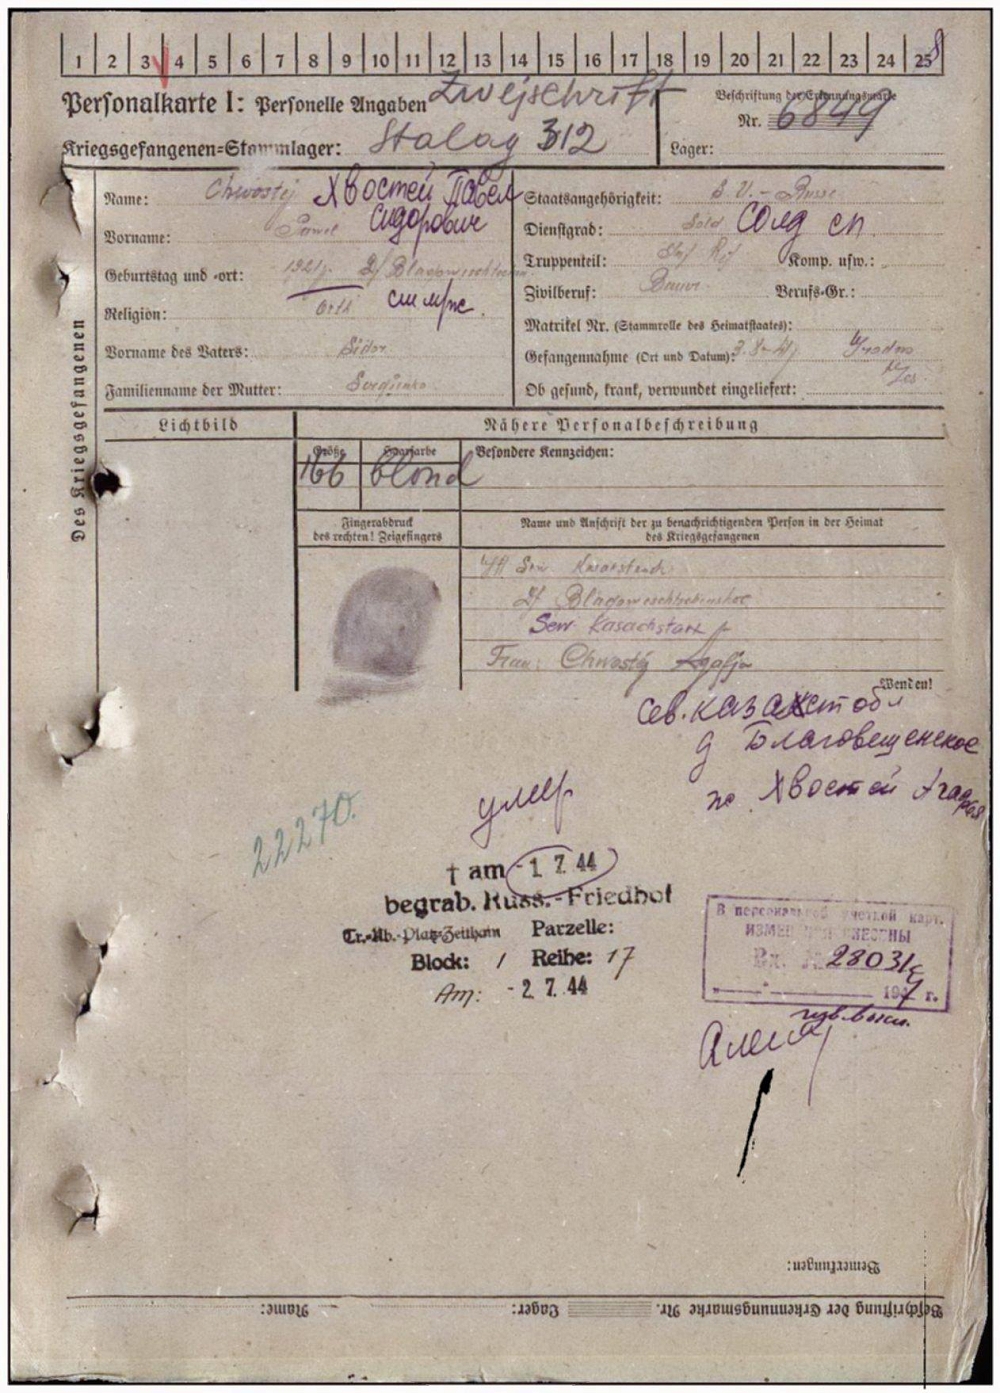 1 2 3 4 5 6 7 8 9 10 11 12 13 14 15 16 17 18 19 20 21 22 23 24 25
Personalkarte I: Personelle Angaben Zwejschrift
Beschriftung der Erkennungsmarke
Nr. 6849
Kriegsgefangenen-Stammlager: Stalag 312
Lager:
Des Kriegsgefangenen
Name: Chwostej Хвостей Павел
Сидорович
Vorname: Pawel
Geburtstag und -ort: 1921
Religion: Orth
Vorname des Vaters: Sidor
Familienname der Mutter:
Staatsangehörigkeit: S.U.- Russe
Dienstgrad: Sold Солд
Truppenteil: Komp. usw.:
Zivilberuf: Bauer Berufs-Gr.:
Matrikel Nr. (Stammrolle des Heimatstaates):
Gefangennahme (Ort und Datum): 3.8-41
Ob gesund, krank, verwundet eingeliefert:
Lichtbild
Nähere Personalbeschreibung
Größe Haarfarbe Besondere Kennzeichen:
166 blond
Fingerabdruck
des rechten! Zeigefingers
Name und Anschrift der zu benachrichtigenden Person in der Heimat
des Kriegsgefangenen
Sew. Kasachstan
Frau: Chwostej Agafja
Wenden!
Сев. казахст обл
д Благовещенское
Хвостей
умер
22270.
† am - 1. 7. 44
begrab. Russ.-Friedhof
Tr.-Üb.-Platz-Zeithain Parzelle:
Block: 1 Reihe: 17
Am: - 2. 7. 44
В персональной учетной карт.
ИЗМЕНЕНИЯ ВНЕСЕНЫ
Вх. № 28031с
1947 г.
Bemerkungen:
Name: Lager: Beschriftung der Erkennungsmarke Nr.